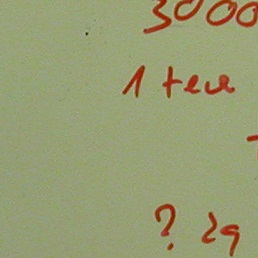 3000
1 teur
? 29